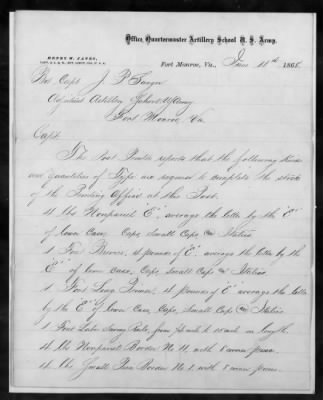 Office Quartermaster Artillery School U. S. Army,
HENRY W. JANES,
Fort Monroe, Va., June 18th 1868.
Bvt Capt J. P. Sanger
Adjutant Artillery School U.S. Army
Fort Monroe, Va.
Capt.
The Post Printer reports that the following kinds
and quantities of Type are required to complete the stock
of the Printing Office at this Post.
4 lbs Nonpareil "E", average the letter by the "E"
of lower Case, Caps, Small Caps & Italics
1 Font Brevier, pounds of "E" average the letter by the
"E" of lower case, Caps, Small Caps & Italics.
1 Font Long Primer, pounds of "E" average the letter
by the "E" of lower Case, Caps, Small Caps & Italics
1 Font Labor Saving Rule, from to in length.
4 lbs Nonpareil Border No 11, with 8 corner pieces.
4 lbs Small Pica Border No 1, with 8 corner pieces.